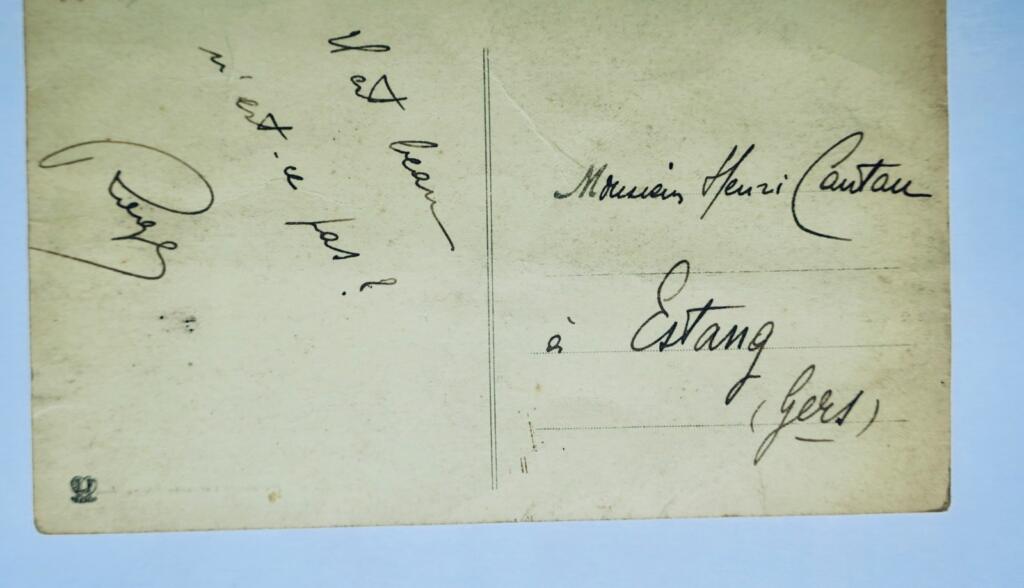 Il est beau
n'est-ce pas ?
Monsieur Henri Cantau
à Estang
(Gers)